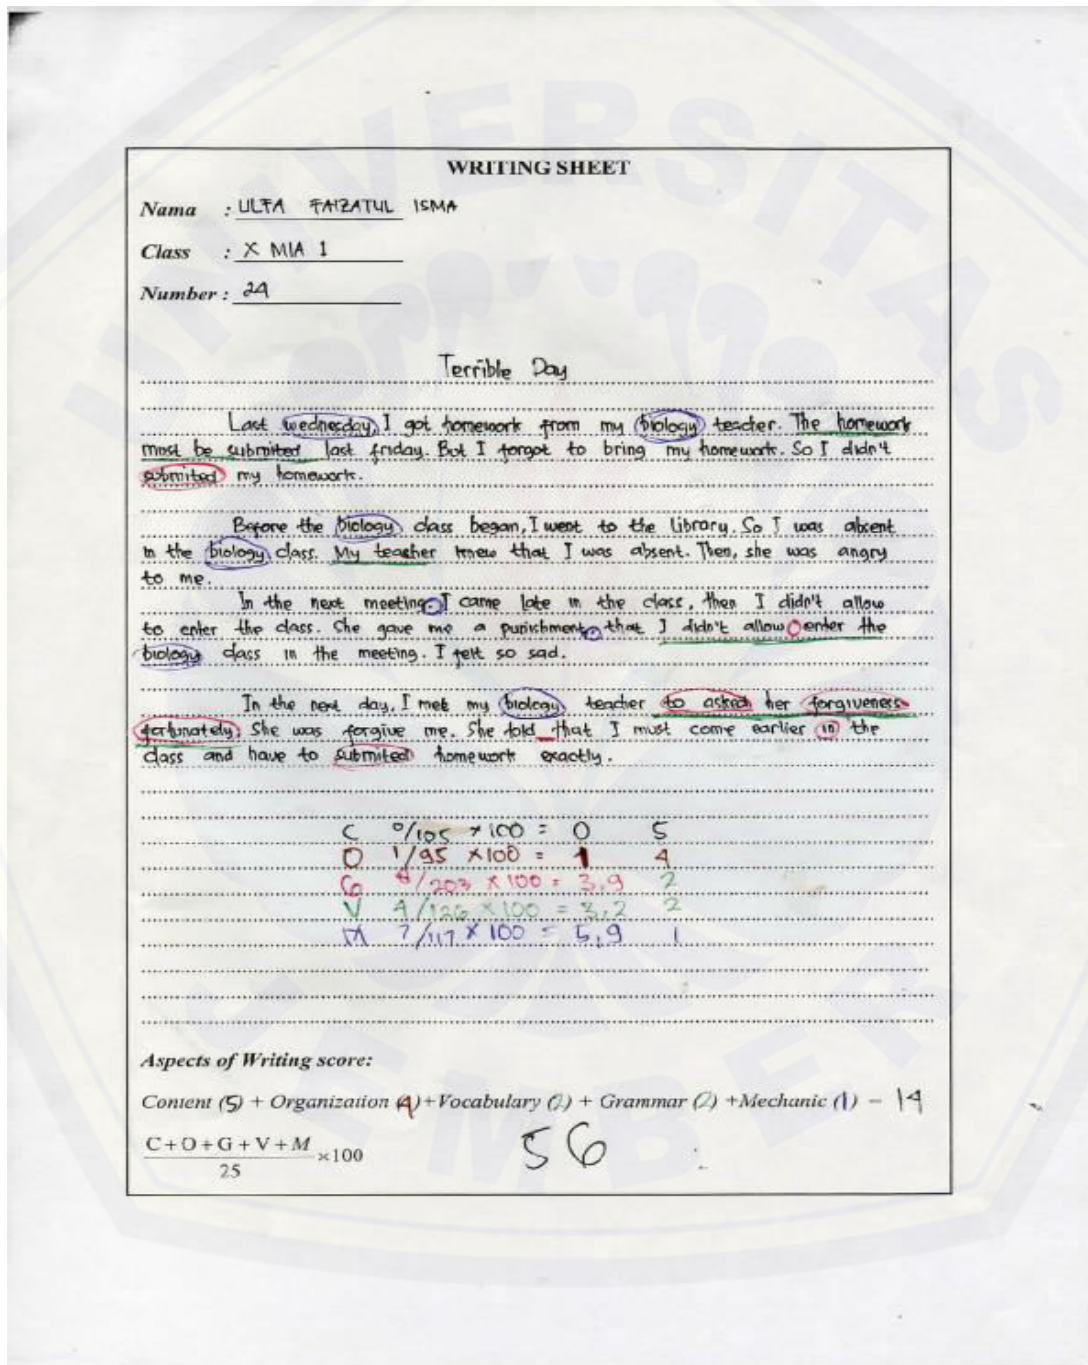 WRITING SHEET
Nama : ULFA FAIZATUL ISMA
Class : X MIA 1
Number : 24
Terrible Day
Last wednesday, I got homework from my biology teacher. The homework
must be submited last friday. But I forgot to bring my homework. So I didn't
submited my homework.
Before the biology class began, I went to the library. So I was absent
in the biology class. My teacher knew that I was absent. Then, she was angry
to me.
In the next meeting. I came late in the class, then I didn't allow
to enter the class. She gave me a punishment, that I didn't allow enter the
biology class in the meeting. I felt so sad.
In the next day, I met my biology teacher to asked her forgiveness
fortunately, She was forgive me. She told that I must come earlier in the
class and have to submited homework exactly.
C 0/105 × 100 = 0 5
O 1/95 ×100 = 1 4
G 8/203 × 100 = 3,9 2
V 4/126 × 100 = 3,2 2
M 7/117 × 100 = 5,9 1
Aspects of Writing score:
Content (5) + Organization (4) +Vocabulary (2) + Grammar (2) +Mechanic (1) = 14
C+O+G+V+M
25
×100
56
UNIVERSITAS JEMBER